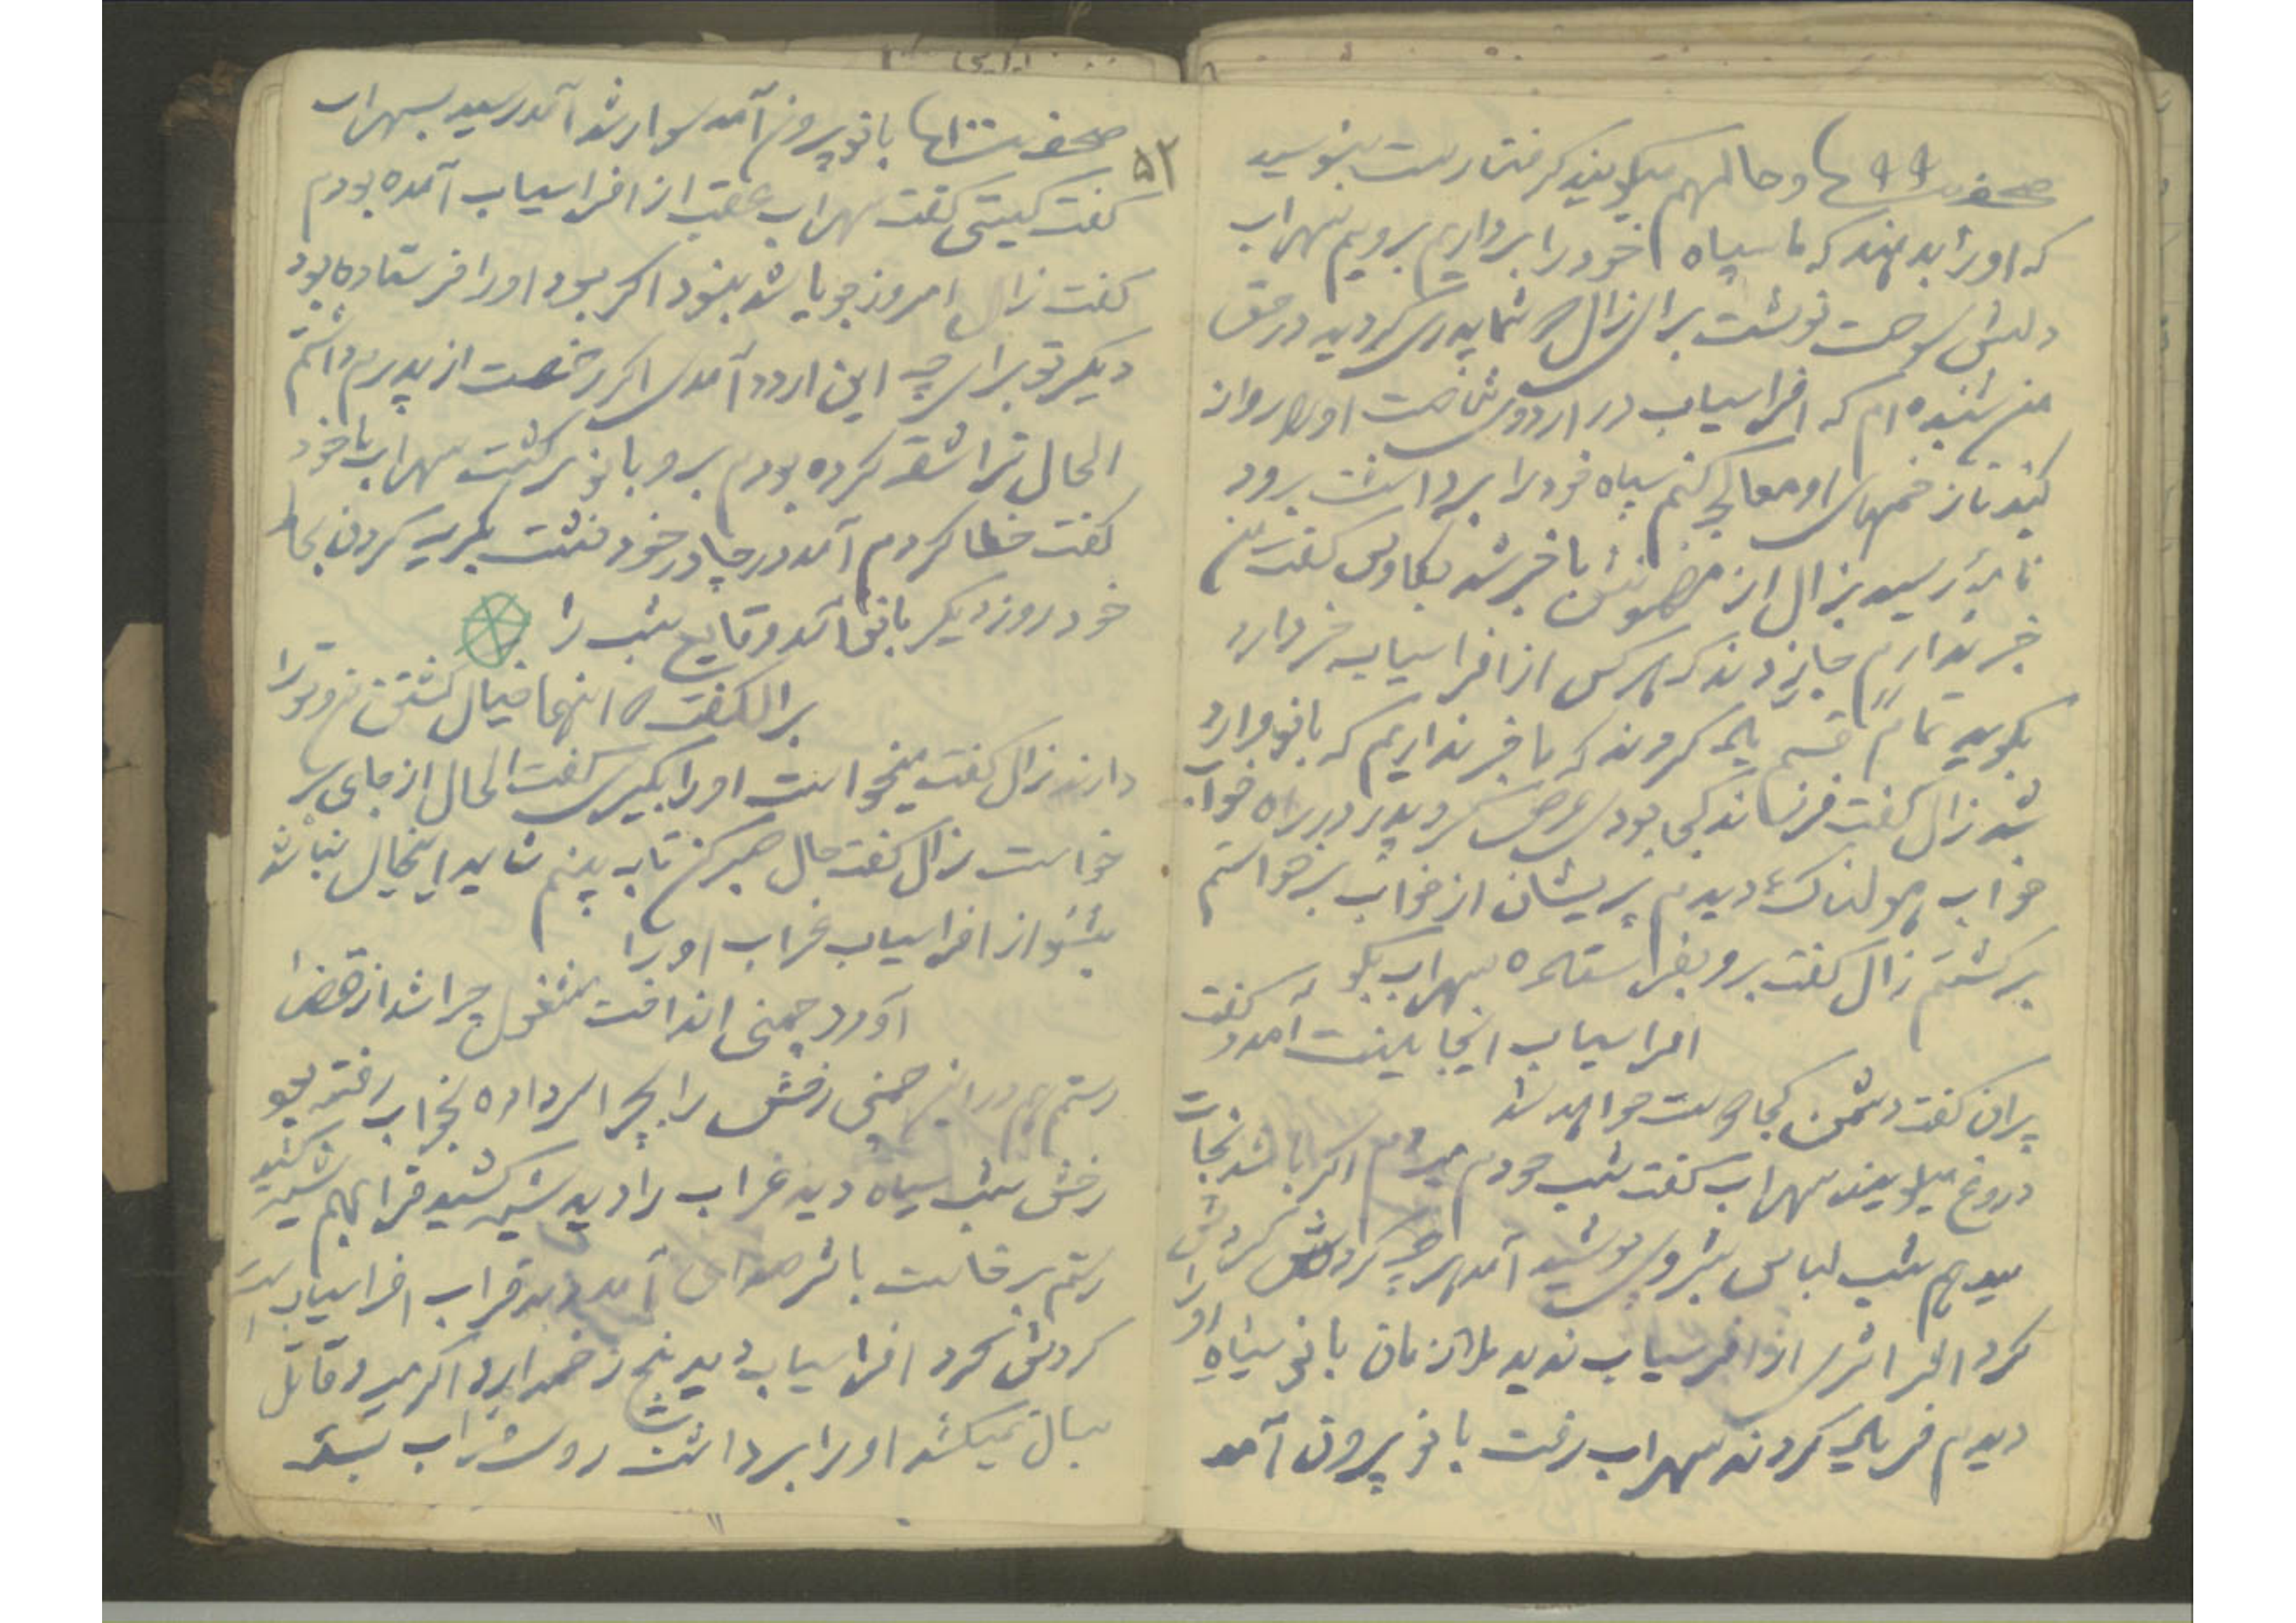 صحفه ۹۹ و حالا هم میگویند گرفتار است بنویسید
که او را بدهند که ما سپاه خود را برداریم برویم سهراب
دلش سوخت نوشت برای زال شما پدری کردید در حق
من شنیده ام که افراسیاب در اردوی شماست او را روانه
کنید تا زخمهای او معالجه کنم سپاه خود را برداشت برود
نامه رسید بزال از مضمونش باخبر شد بکاوس گفت من
خبر ندارم جار زدند که هرکس از افراسیاب خبر دارد
بگوید تمام قسم یاد کردند که ما خبر نداریم که بانو وارد
شد زال گفت فرزند کجا بودی عرض کرد پدر در راه خواب
خواب هولناک دیدم پریشان از خواب برخواستم
برگشتم زال گفت برو بفراستاده سهراب بگو
افراسیاب اینجا نیست آمد و گفت
پیران گفت دشمن کجا دوست خواهد شد
دروغ میگویند سهراب گفت شب خودم میروم اگر باشد نجات
میدهم شب لباس شبروی پوشید آمد هرچه گردش کردش
کرد اثری از افراسیاب ندید ملازمان بانو سیاه او را
دیدم فریاد کردند سهراب رفت بانو بیرون آمد
۵۲
صحفه ۱۰۰ بانو بیرون آمد سوار شد آمد رسید بسهراب
گفت کیستی گفت سهراب عقب از افراسیاب آمده بودم
گفت زال امروز جویا شد نبود اگر بود او را فرستاده بود
دیگر تو برای چه این اردو آمدی اگر رخصت از پدرم داشتم
الحال ترا شقه کرده بودم برو بانو برگشت سهراب با خود
گفت خطا کردم آمد در چادر خود نشست بگریه کردن بحال
خود روز دیگر بانو آمد وقایع شب را
بزال گفت اینها خیال کشتن من و ترا
دارند زال گفت میخواست او را بگیری گفت الحال از جای بر
خواست زال گفت حال صبر کن تا به بینم شاید اینخیال نباشد
بشنو از افراسیاب غراب او را
آورد چمنی انداخت مشغول چرا شد از قضا
رستم هم در این چمنی رخش را بچرا سر داده بخواب رفته بود
رخش شب سیاه دید غراب را دید شیهه کشید قراب هم شیهه کشید
رستم برخاست باثر صدای آمد دید قراب افراسیاب
گردش کرد افراسیاب دید پنج زخم دارد اگر میرد قاتل
سال نمیکشد او را برداشت روی غراب بست